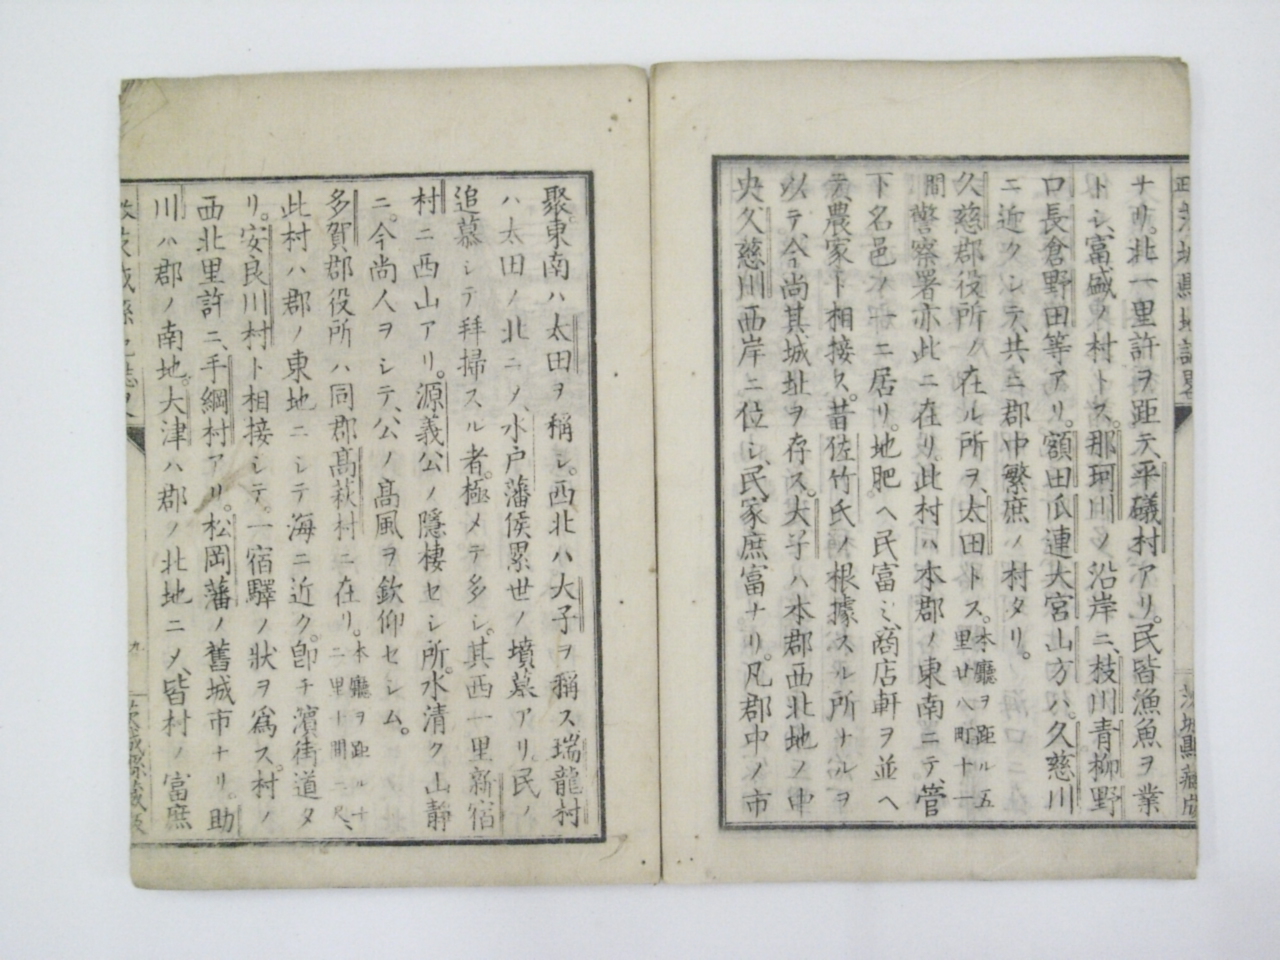 ナリ。北一里許ヲ距テ、平磯村アリ。民皆漁魚ヲ業
トシ、富盛ノ村トス。那珂川ノ沿岸ニ、枝川青柳野
口長倉野田等アリ。額田瓜連大宮山方ハ、久慈川
ニ近クシテ、共ニ郡中繁庶ノ村タリ。
久慈郡役所ノ在ル所ヲ、太田トス。本廳ヲ距ル五里廿八町十一
間警察署亦此ニ在リ。此村ハ本郡ノ東南ニテ、管
下名邑ノ一ニ居リ。地肥ヘ民富ミ、商店軒ヲ並ヘ
テ農家ト相接ス。昔佐竹氏ノ根據スル所ナルヲ
以テ、今尚其城址ヲ存ス。大子ハ本郡西北地ノ中
央、久慈川西岸ニ位シ、民家庶富ナリ。凡郡中ノ市
聚。東南ハ太田ヲ稱シ。西北ハ大子ヲ稱ス瑞龍村
ハ太田ノ北ニメ、水戸藩侯累世ノ墳墓アリ。民ノ
追慕シテ拜掃スル者。極メテ多シ。其西一里新宿
村ニ西山アリ。源義公ノ隱棲セシ所。水清ク山靜
ニ。今尚人ヲシテ、公ノ高風ヲ欽仰セシム。
多賀郡役所ハ同郡高萩村ニ在リ。本廳ヲ距ル十二里十間二尺、
此村ハ郡ノ東地ニシテ海ニ近ク。卽チ濱街道タ
リ。安良川村ト相接シテ。一宿驛ノ狀ヲ爲ス。村ノ
西北里許ニ、手綱村アリ。松岡藩ノ舊城市ナリ。助
川ハ郡ノ南地。大津ハ郡ノ北地ニメ、皆村ノ富庶
九
茨城縣藏版